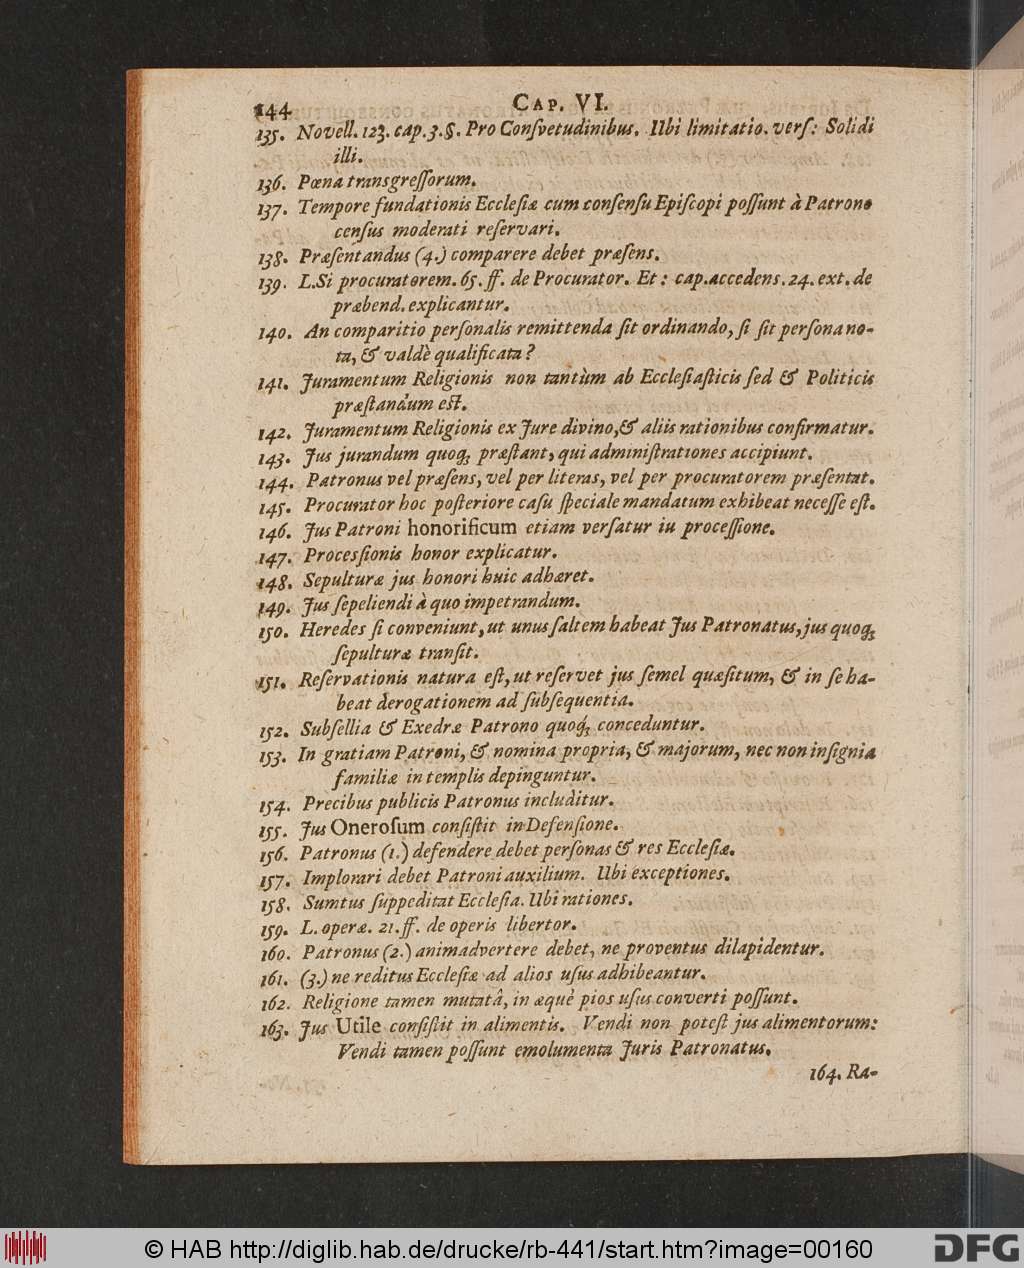 144 CAP. VI.
135. Novell. 123. cap. 3. §. Pro Conſvetudinibus. Ubi limitatio. verſ: Solidi
illi.
136. Pœna transgreſſorum.
137. Tempore fundationis Eccleſiæ cum conſenſu Epiſcopi poſſunt à Patrono
cenſus moderati reſervari.
138. Præſentandus (4.) comparere debet præſens.
139. L. Si procuratorem. 65. ff. de Procurator. Et: cap. accedens. 24. ext. de
præbend. explicantur.
140. An comparitio perſonalis remittenda ſit ordinando, ſi ſit perſona no-
ta, & valdè qualificata?
141. Juramentum Religionis non tantùm ab Eccleſiaſticis ſed & Politicis
præſtandum eſt.
142. Juramentum Religionis ex Jure divino, & aliis rationibus confirmatur.
143. Jus jurandum quoq; præſtant, qui adminiſtrationes accipiunt.
144. Patronus vel præſens, vel per literas, vel per procuratorem præſentat.
145. Procurator hoc poſteriore caſu ſpeciale mandatum exhibeat neceſſe eſt.
146. Jus Patroni honorificum etiam verſatur iu proceſſione.
147. Procesſionis honor explicatur.
148. Sepulturæ jus honori huic adhæret.
149. Jus ſepeliendi à quo impetrandum.
150. Heredes ſi conveniunt, ut unus ſaltem habeat Jus Patronatus, jus quoq;
ſepulturæ tranſit.
151. Reſervationis natura eſt, ut reſervet jus ſemel quæſitum, & in ſe ha-
beat derogationem ad ſubſequentia.
152. Subſellia & Exedræ Patrono quoq; conceduntur.
153. In gratiam Patroni, & nomina propria, & majorum, nec non inſignia
familiæ in templis depinguntur.
154. Precibus publicis Patronus includitur.
155. Jus Oneroſum conſiſtit in Defenſione.
156. Patronus (1.) defendere debet perſonas & res Eccleſiæ.
157. Implorari debet Patroni auxilium. Ubi exceptiones.
158. Sumtus ſuppeditat Eccleſia. Ubi rationes.
159. L. operæ. 21. ff. de operis libertor.
160. Patronus (2.) animadvertere debet, ne proventus dilapidentur.
161. (3.) ne reditus Eccleſiæ ad alios uſus adhibeantur.
162. Religione tamen mutatâ, in æquè pios uſus converti poſſunt.
163. Jus Utile conſiſtit in alimentis. Vendi non poteſt jus alimentorum:
Vendi tamen poſſunt emolumenta Juris Patronatus.
164. Ra-
© HAB http://diglib.hab.de/drucke/rb-441/start.htm?image=00160
DFG